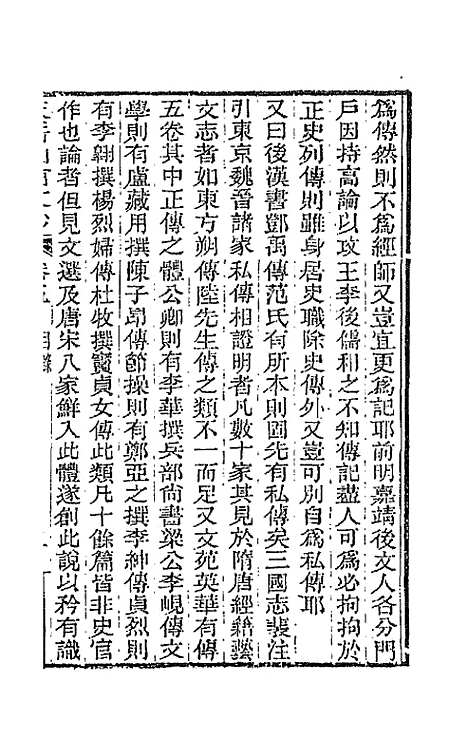 爲傳然則不爲經師又豈宜更爲記耶前明嘉靖後文人各分門
戶因持高論以攻王李後儒和之不知傳記盡人可爲必拘拘於
正史列傳則雖身居史職除史傳外又豈可別自爲私傳耶
又曰後漢書鄧禹傳范氏有所本則固先有私傳矣三國志裴注
引東京魏晉諸家私傳相證明者凡數十家其見於隋唐經籍藝
文志者如東方朔傳陸先生傳之類不一而足又文苑英華有傳
五卷其中正傳之體公卿則有李華撰兵部尚書梁公李峴傳文
學則有盧藏用撰陳子昂傳節操則有鄭亞之撰李紳傳貞烈則
有李翱撰楊烈婦傳杜牧撰竇貞女傳此類凡十餘篇皆非史官
作也論者但見文選及唐宋八家鮮入此體遂創此說以矜有識
卷五 目錄